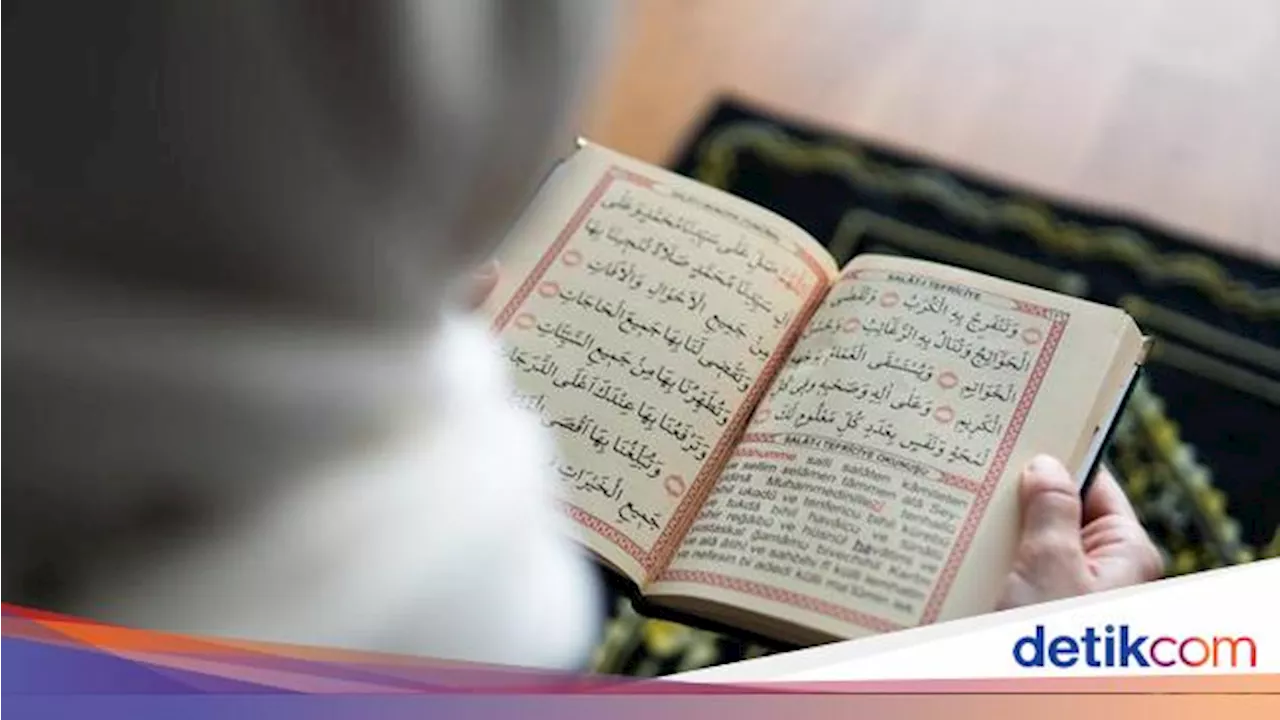 سَيِّدِنَا مُحَمَّدٍ صَلَاةً تُنْجِينَا بِهَا
مِنْ جَمِيعِ الْاَحْوَالِ وَالْاٰفَاتِ
وَتَقْضِى لَنَا بِهَا جَمِيعَ الْحَاجَاتِ
وَتُطَهِّرُنَا بِهَا مِنْ جَمِيعِ السَّيِّئَاتِ
وَتَرْفَعُنَا بِهَا عِنْدَكَ اَعْلَى الدَّرَجَاتِ
وَتُبَلِّغُنَا بِهَا اَقْصَى
جَمِيعِ الْخَيْرَاتِ
SALÂT-I TEFRİCİYE
وَتَنْفَرِجُ بِهِ الْكُرَبُ وَتُقْضٰى
الْحَوَائِجُ وَتُنَالُ بِهِ الرَّغَائِبُ وَحُسْنُ
الْخَوَاتِمِ وَيُسْتَسْقَى الْغَمَامُ بِوَجْهِهِ
الْكَرِيمِ وَعَلٰى اٰلِهِ وَصَحْبِهِ فِى كُلِّ
لَمْحَةٍ وَنَفَسٍ بِعَدَدِ كُلِّ مَعْلُومٍ لَكَ
SALÂT-I TEFRİCİYE OKUNUŞU
salli salâten kâmileten
ve sellim selâmen tâmmen alâ
Muhammedinillezî
ukadü ve tenfericu bihil
bihil havâicu ve tünâlu
reğâibü ve hüsnül
ğamâmu bivechihil
alâ âlihî ve sahbihi fî külli lemhatin
ve nefesin bi adedi külli
detikcom